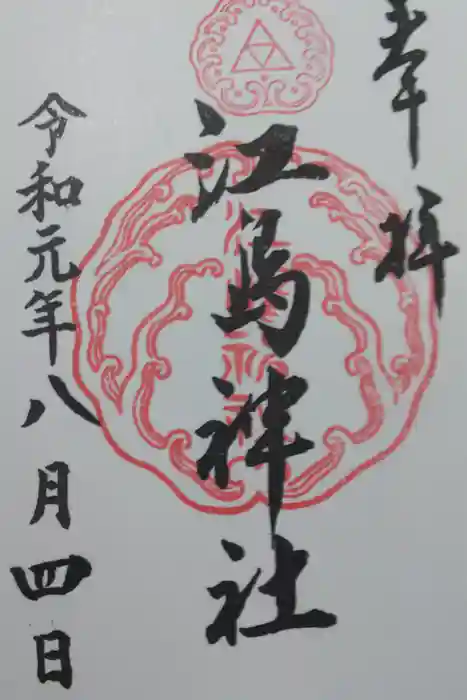 奉拝
江島神社
令和元年八月四日